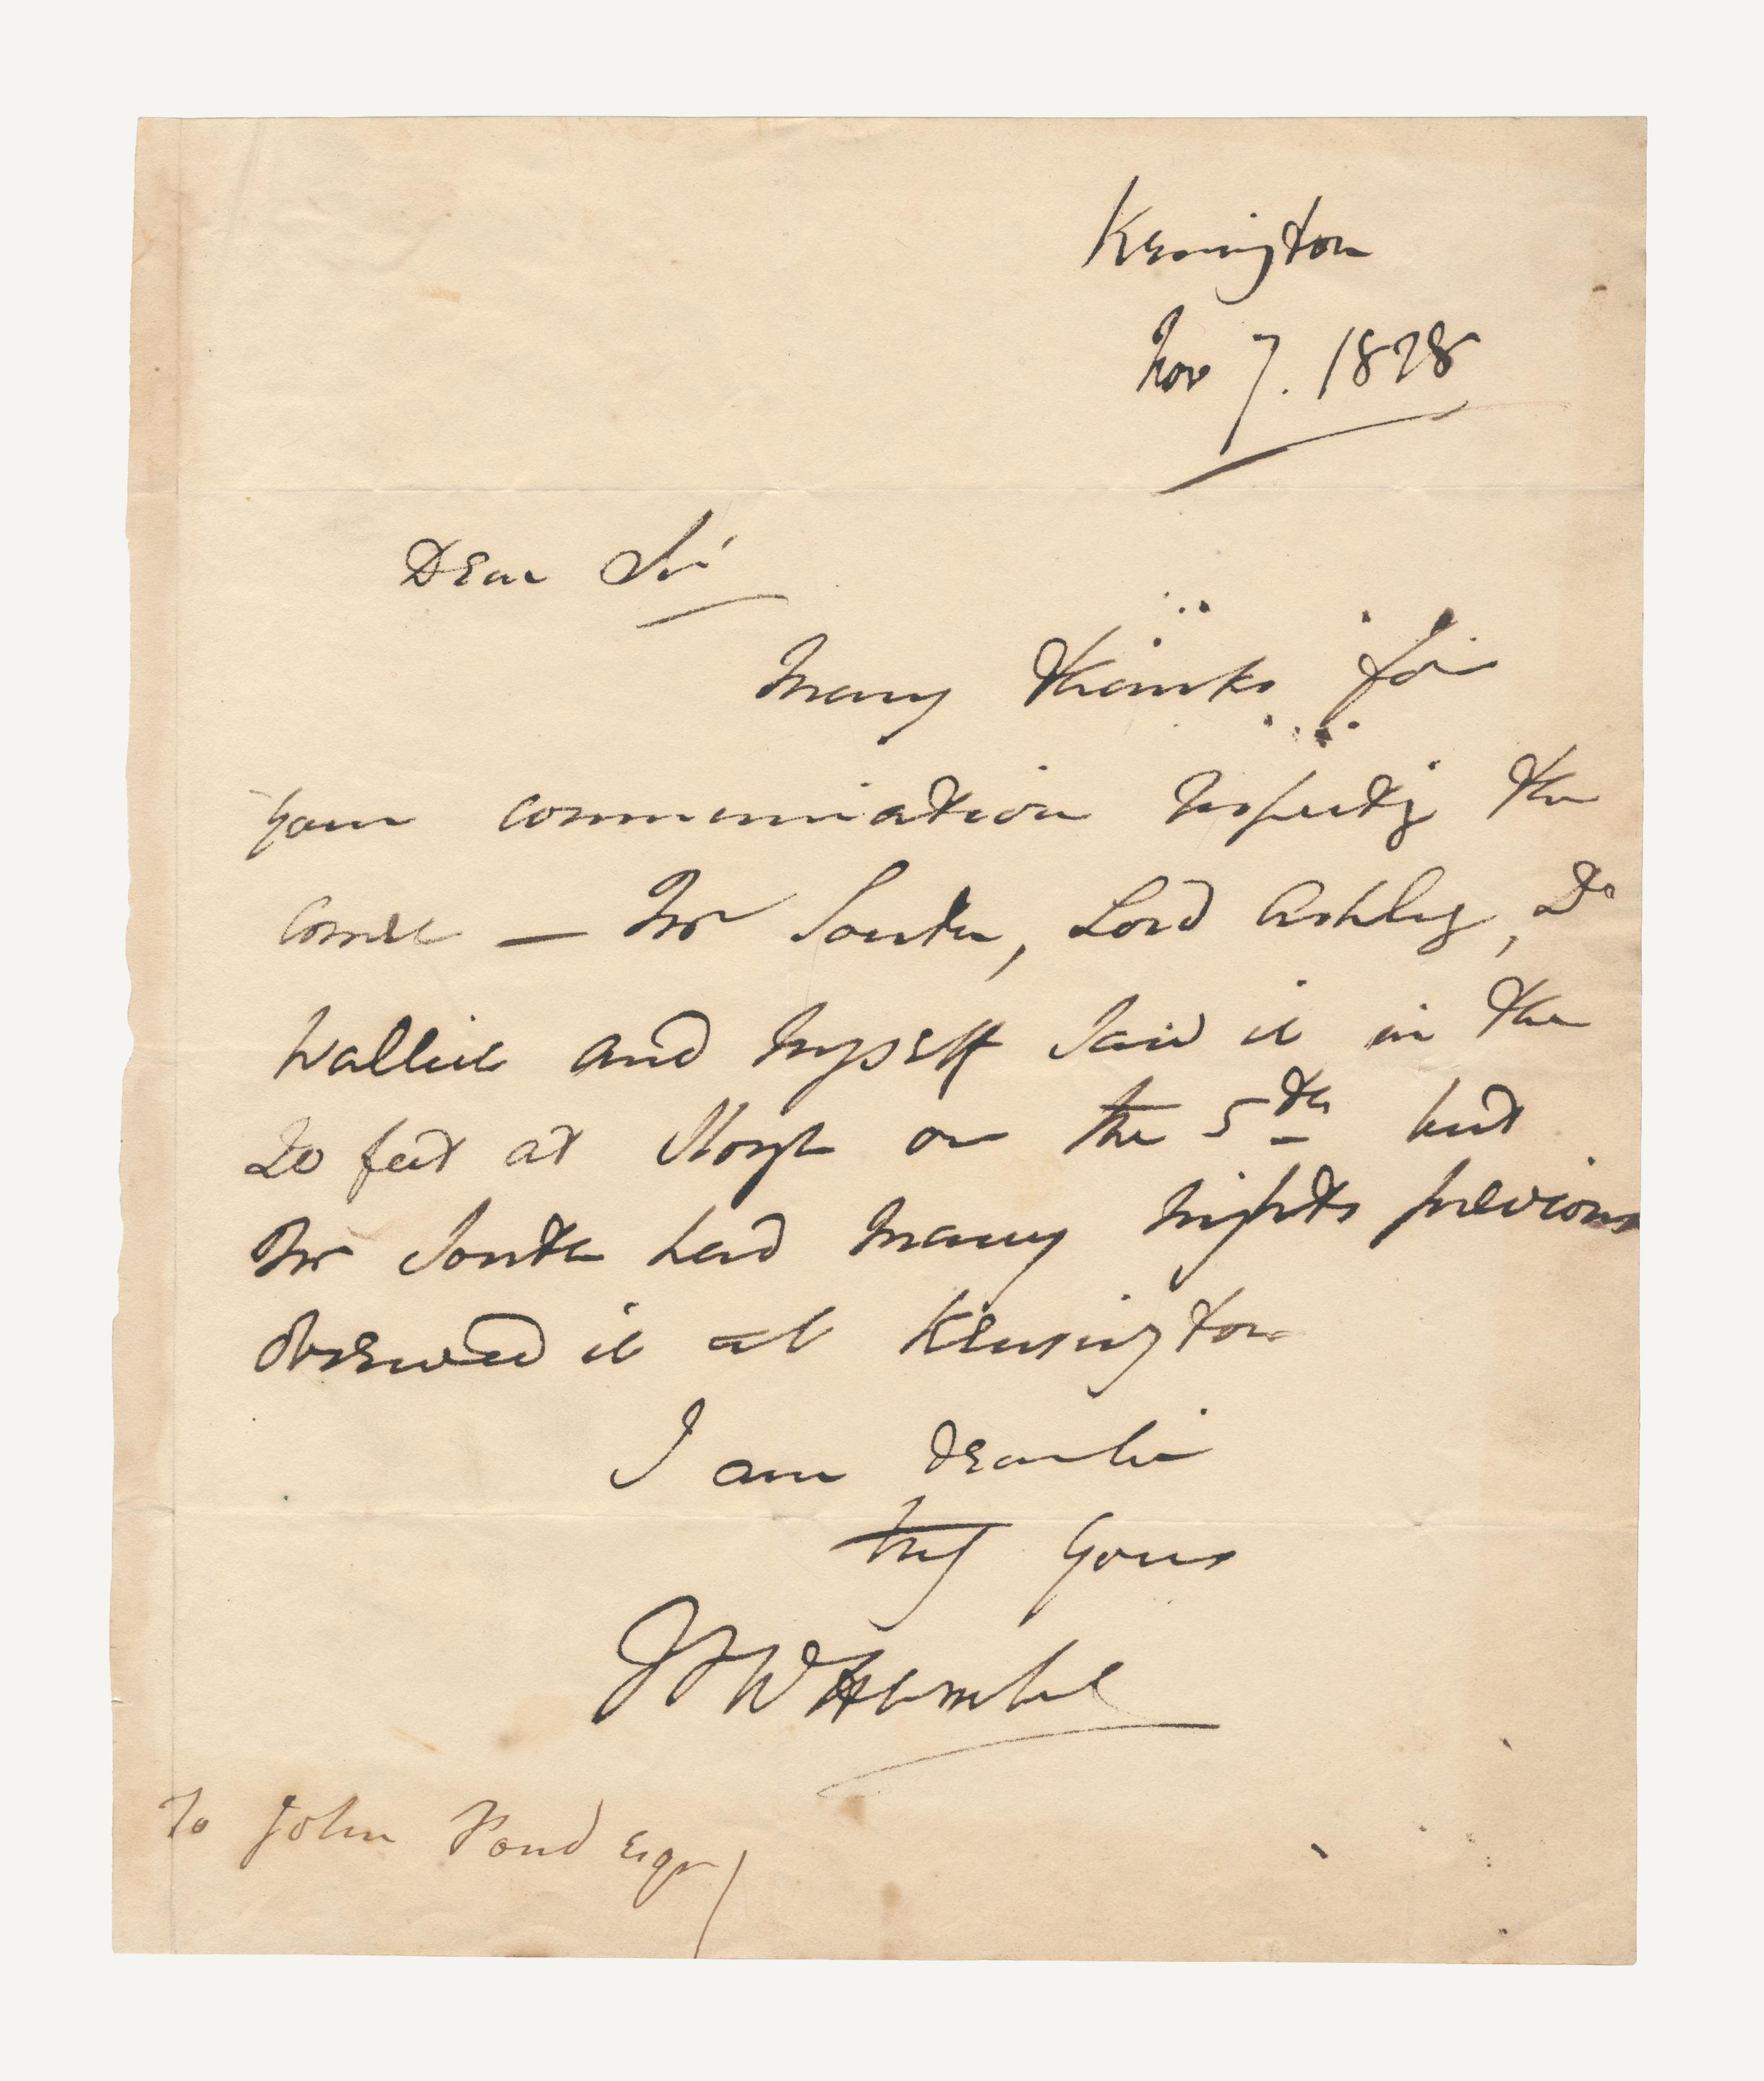 Kensington
Nov 7. 1828
Dear Sir
Many thanks for
your communication respectg the
Comet — Mr South, Lord Ashley, Dr
Wallich and myself saw it in the
20 feet at Slough on the 5th but
Mr South had many nights previous
observed it at Kensington
I am dear Sir
truly yours
JFW Herschel
To John Pond Esqr